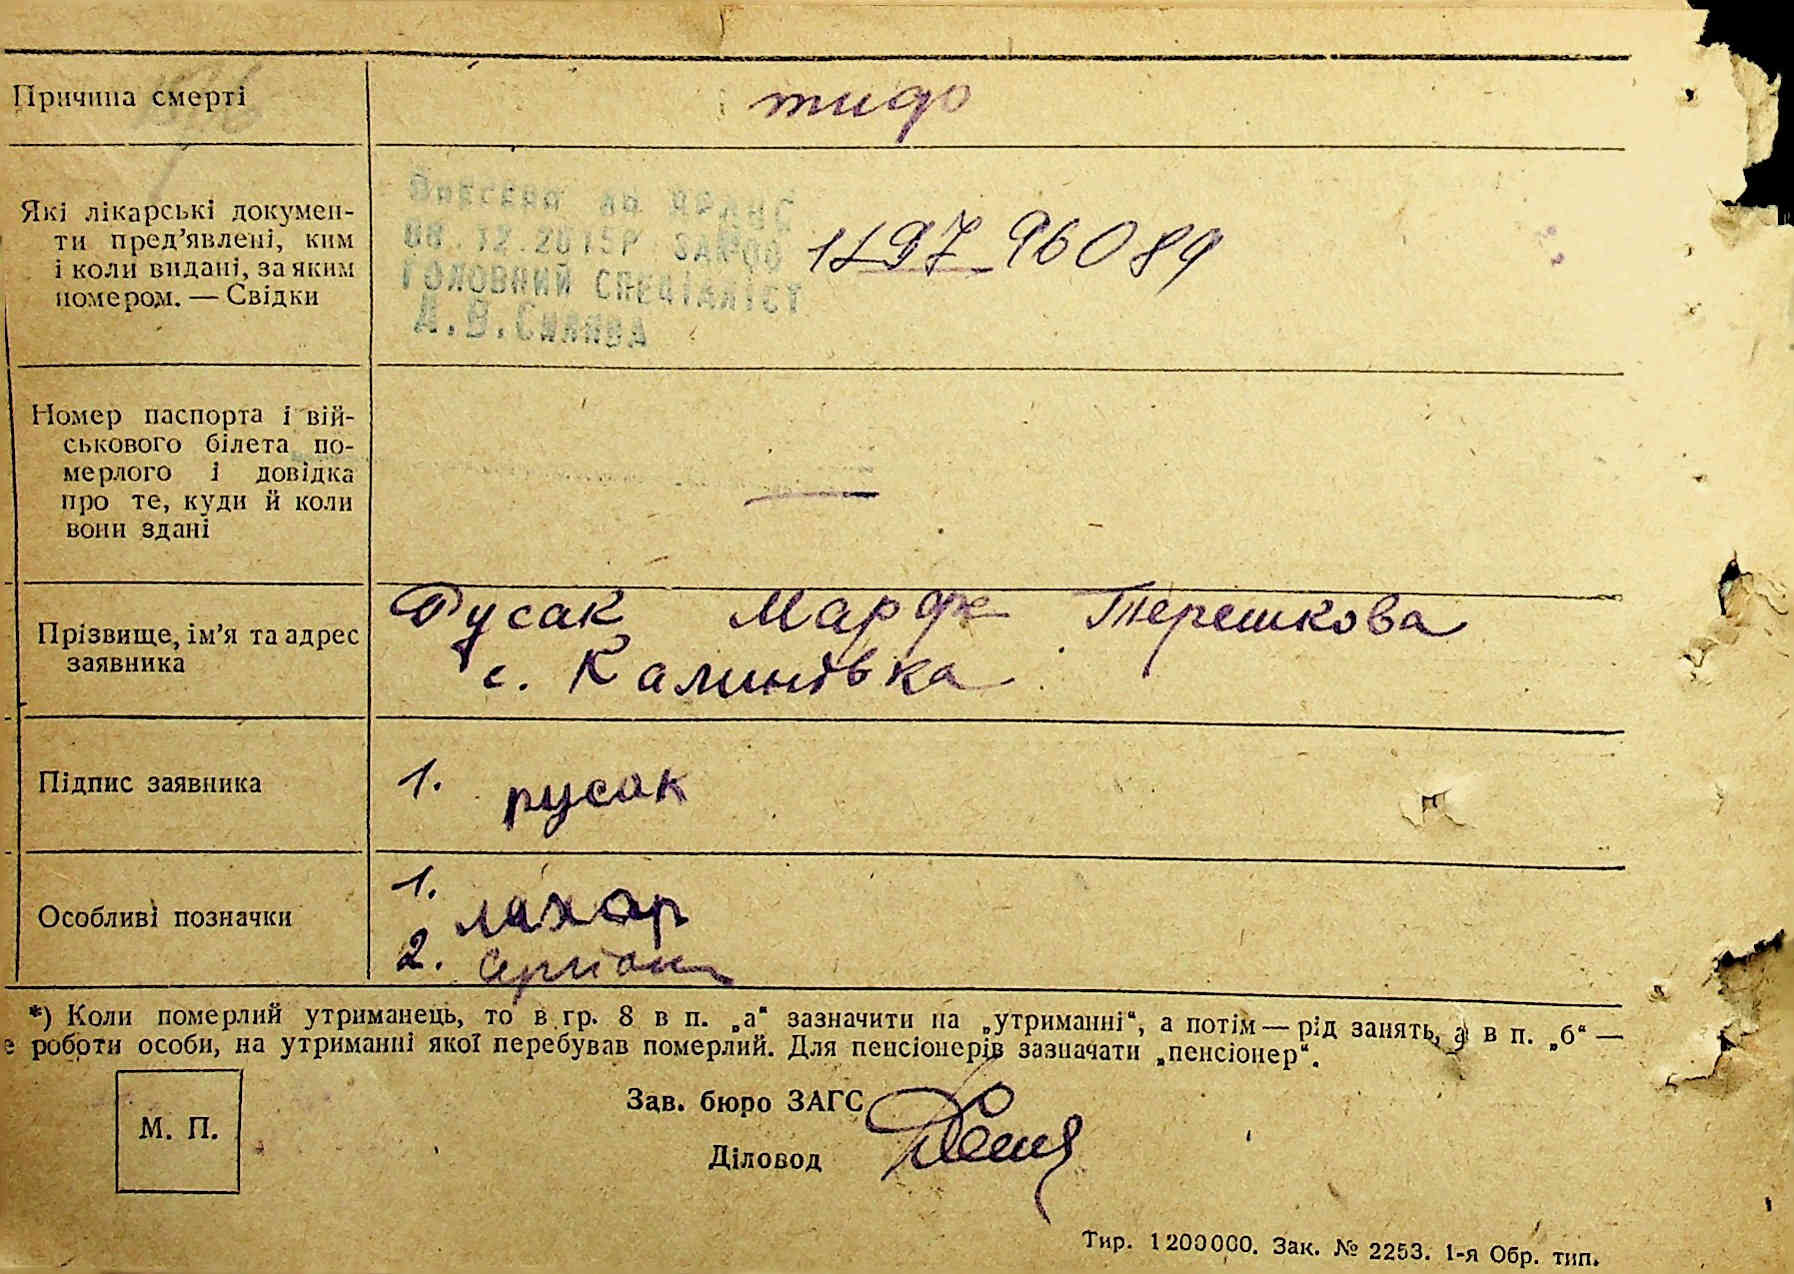 Причина смерті
тиф
Які лікарські докумен-
ти пред’явлені, ким
і коли видані, за яким
номером. — Свідки
Внесено до ДРАЦС
08.12.2015р
ГОЛОВНИЙ СПЕЦІАЛІСТ
А.В.
96089
Номер паспорта і вій-
ськового білета по-
мерлого і довідка
про те, куди й коли
вони здані
—
Прізвище, ім’я та адрес
заявника
Русак Марфа Терешкова
с. Калинівка
Підпис заявника
1. русак
Особливі позначки
1. лахар
2.
*) Коли померлий утриманець, то в гр. 8 в п. „а“ зазначити на „утриманні“, а потім — рід занять, а в п. „б“ —
е роботи особи, на утриманні якої перебував померлий. Для пенсіонерів зазначати „пенсіонер“.
М. П.
Зав. бюро ЗАГС
Діловод
Тир. 1200000. Зак. № 2253. 1-я Обр. тип.